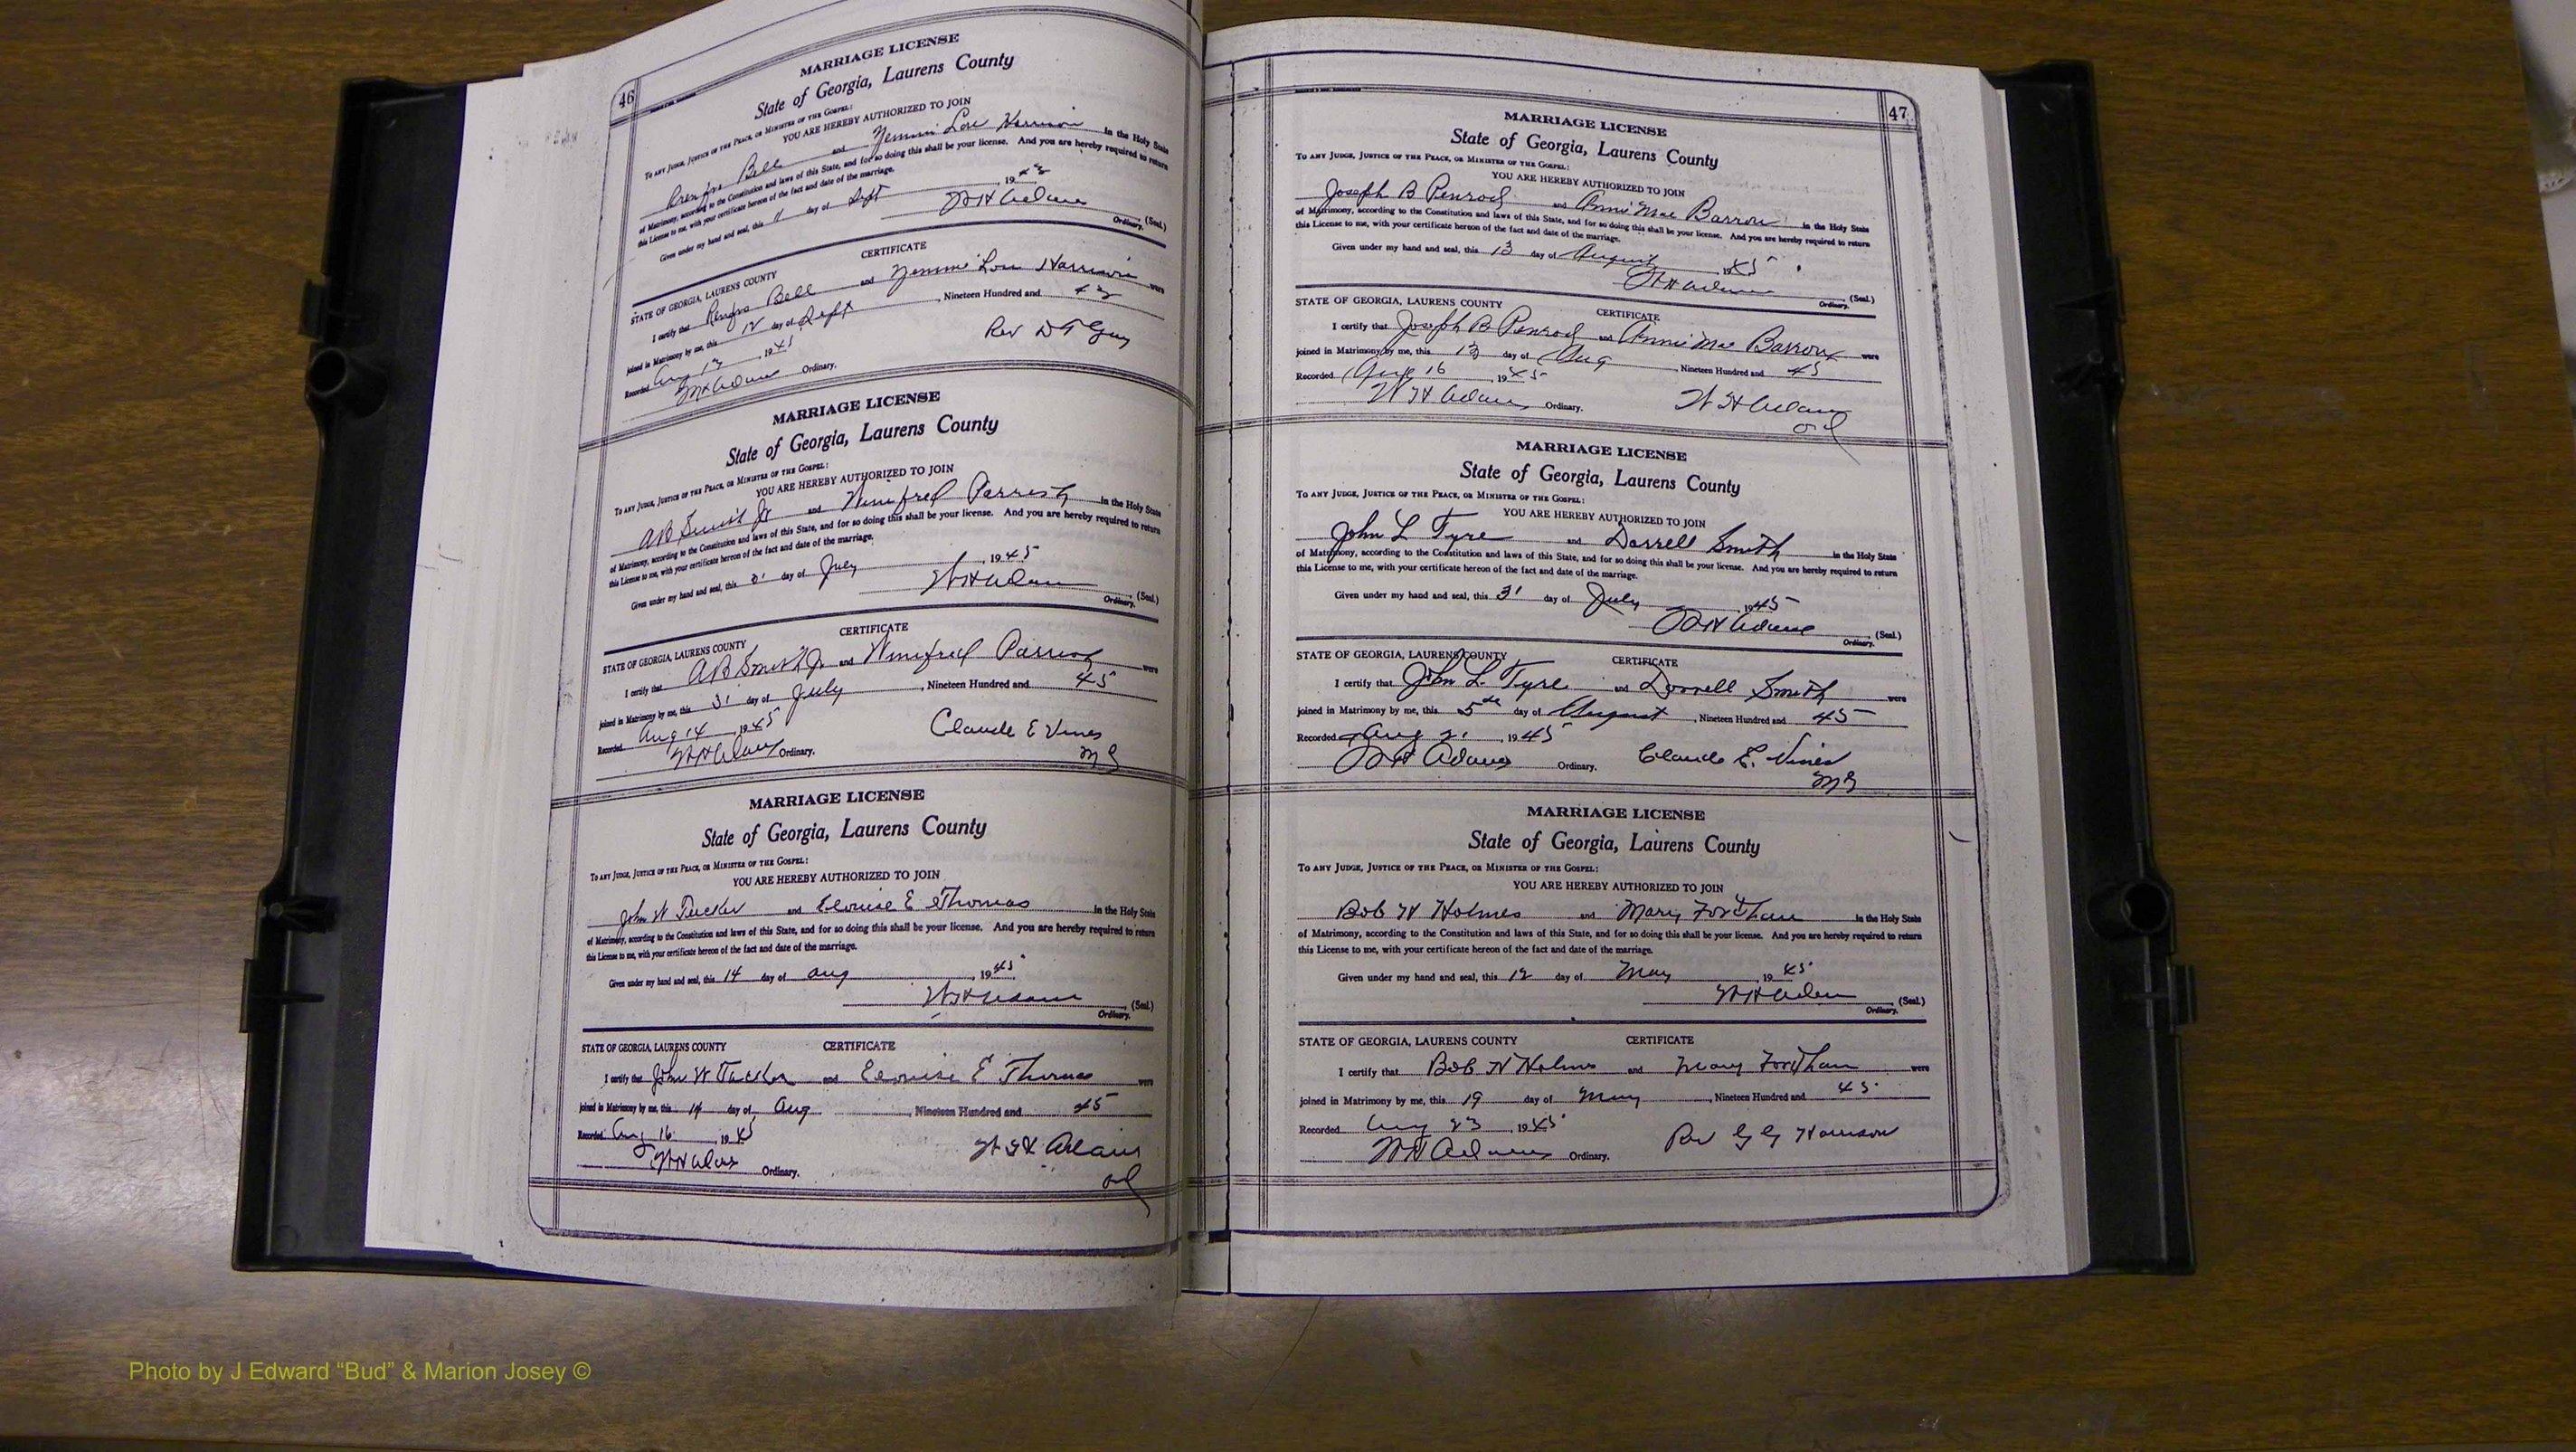 46
MARRIAGE LICENSE
State of Georgia, Laurens County
To ANY JUDGE, JUSTICE OF THE PEACE, OR MINISTER OF THE GOSPEL:
YOU ARE HEREBY AUTHORIZED TO JOIN
Bell and Lou Harrison in the Holy State
of Matrimony, according to the Constitution and laws of this State, and for so doing this shall be your license. And you are hereby required to return
this License to me, with your certificate hereon of the fact and date of the marriage.
Given under my hand and seal, this 11 day of Sept, 19
W H Adams (Seal.)
Ordinary.
STATE OF GEORGIA, LAURENS COUNTY CERTIFICATE
I certify that Bell and Lou Harrison were
joined in Matrimony by me, this 12 day of Sept, Nineteen Hundred and
Recorded Aug 13, 1945 Rev D T Guy
W H Adams Ordinary.
MARRIAGE LICENSE
State of Georgia, Laurens County
To ANY JUDGE, JUSTICE OF THE PEACE, OR MINISTER OF THE GOSPEL:
YOU ARE HEREBY AUTHORIZED TO JOIN
A B Smith Jr and Winifred Parrish in the Holy State
of Matrimony, according to the Constitution and laws of this State, and for so doing this shall be your license. And you are hereby required to return
this License to me, with your certificate hereon of the fact and date of the marriage.
Given under my hand and seal, this 31 day of July, 1945
W H Adams (Seal.)
Ordinary.
STATE OF GEORGIA, LAURENS COUNTY CERTIFICATE
I certify that A B Smith Jr and Winifred Parrish were
joined in Matrimony by me, this 31 day of July, Nineteen Hundred and 45
Recorded Aug 14, 1945 Claude E Vines
W H Adams Ordinary. M G
MARRIAGE LICENSE
State of Georgia, Laurens County
To ANY JUDGE, JUSTICE OF THE PEACE, OR MINISTER OF THE GOSPEL:
YOU ARE HEREBY AUTHORIZED TO JOIN
John W Tucker and Elouise E Thomas in the Holy State
of Matrimony, according to the Constitution and laws of this State, and for so doing this shall be your license. And you are hereby required to return
this License to me, with your certificate hereon of the fact and date of the marriage.
Given under my hand and seal, this 14 day of Aug, 1945
W H Adams (Seal.)
Ordinary.
STATE OF GEORGIA, LAURENS COUNTY CERTIFICATE
I certify that John W Tucker and Elouise E Thomas were
joined in Matrimony by me, this 14 day of Aug, Nineteen Hundred and 45
Recorded Aug 16, 1945 W H Adams
W H Adams Ordinary. Od
47
MARRIAGE LICENSE
State of Georgia, Laurens County
To ANY JUDGE, JUSTICE OF THE PEACE, OR MINISTER OF THE GOSPEL:
YOU ARE HEREBY AUTHORIZED TO JOIN
Joseph B Penrod and Annie Mae Barron in the Holy State
of Matrimony, according to the Constitution and laws of this State, and for so doing this shall be your license. And you are hereby required to return
this License to me, with your certificate hereon of the fact and date of the marriage.
Given under my hand and seal, this 13 day of August, 1945
W H Adams (Seal.)
Ordinary.
STATE OF GEORGIA, LAURENS COUNTY CERTIFICATE
I certify that Joseph B Penrod and Annie Mae Barron were
joined in Matrimony by me, this 13 day of Aug, Nineteen Hundred and 45
Recorded Aug 16, 1945
W H Adams Ordinary. W H Adams
Od
MARRIAGE LICENSE
State of Georgia, Laurens County
To ANY JUDGE, JUSTICE OF THE PEACE, OR MINISTER OF THE GOSPEL:
YOU ARE HEREBY AUTHORIZED TO JOIN
John L Tyre and Dorrell Smith in the Holy State
of Matrimony, according to the Constitution and laws of this State, and for so doing this shall be your license. And you are hereby required to return
this License to me, with your certificate hereon of the fact and date of the marriage.
Given under my hand and seal, this 31 day of July, 1945
W H Adams (Seal.)
Ordinary.
STATE OF GEORGIA, LAURENS COUNTY CERTIFICATE
I certify that John L. Tyre and Dorrell Smith were
joined in Matrimony by me, this 5th day of August, Nineteen Hundred and 45
Recorded Aug 21, 1945
W H Adams Ordinary. Claude E. Vines
M G
MARRIAGE LICENSE
State of Georgia, Laurens County
To ANY JUDGE, JUSTICE OF THE PEACE, OR MINISTER OF THE GOSPEL:
YOU ARE HEREBY AUTHORIZED TO JOIN
Bob H Holmes and Mary Fordham in the Holy State
of Matrimony, according to the Constitution and laws of this State, and for so doing this shall be your license. And you are hereby required to return
this License to me, with your certificate hereon of the fact and date of the marriage.
Given under my hand and seal, this 12 day of May, 1945
W H Adams (Seal.)
Ordinary.
STATE OF GEORGIA, LAURENS COUNTY CERTIFICATE
I certify that Bob H Holmes and Mary Fordham were
joined in Matrimony by me, this 19 day of May, Nineteen Hundred and 45
Recorded Aug 23, 1945 Rev G G Harrison
W H Adams Ordinary.
Photo by J Edward “Bud” & Marion Josey ©